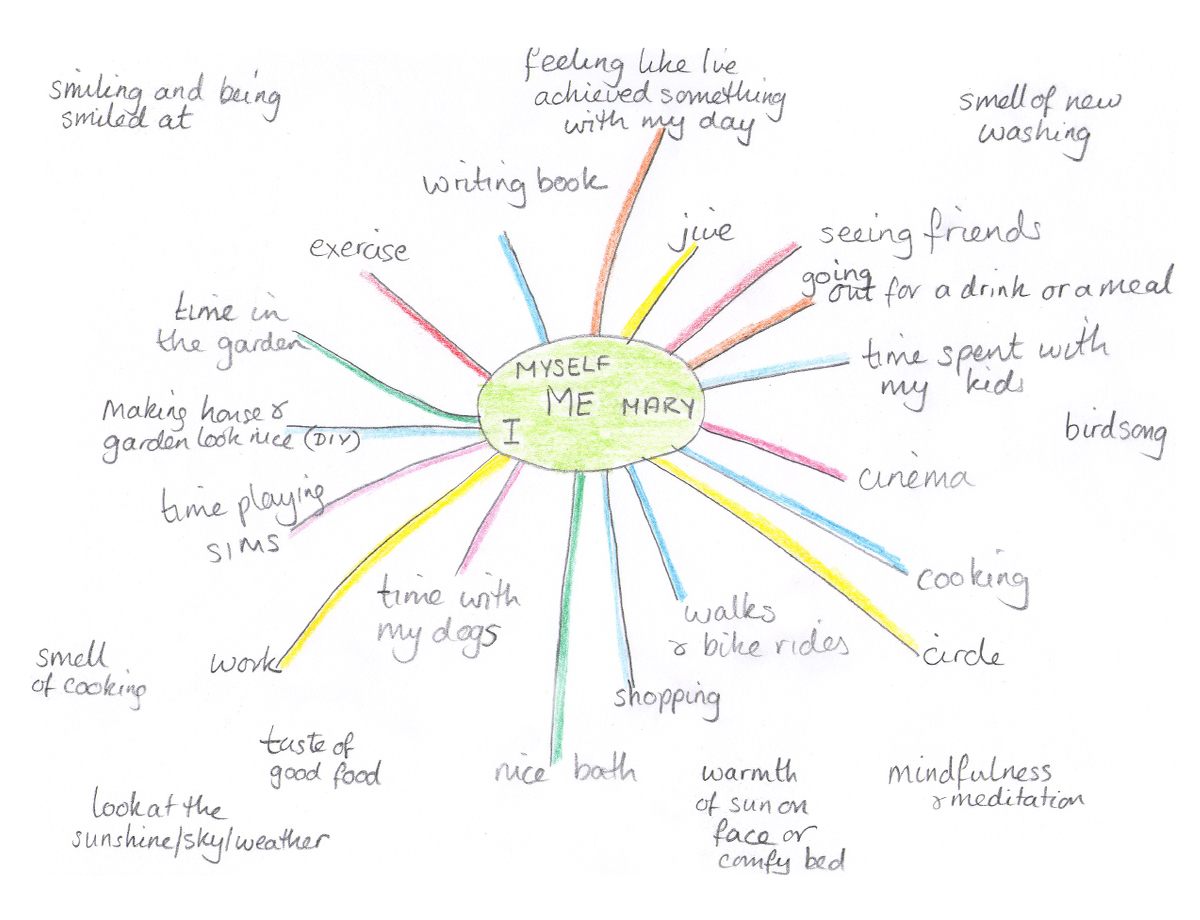 feeling like I've
achieved something
with my day
smiling and being
smiled at
smell of new
washing
writing book
jive
seeing friends
exercise
going
out for a drink or a meal
time in
the garden
time spent with
my kids
making house &
garden look nice (DIY)
MYSELF
ME MARY
I
birdsong
cinema
time playing
SIMS
cooking
time with
my dogs
walks
& bike rides
circle
smell
of cooking
work
shopping
taste of
good food
nice bath
warmth
of sun on
face or
comfy bed
mindfulness
& meditation
look at the
sunshine/sky/weather